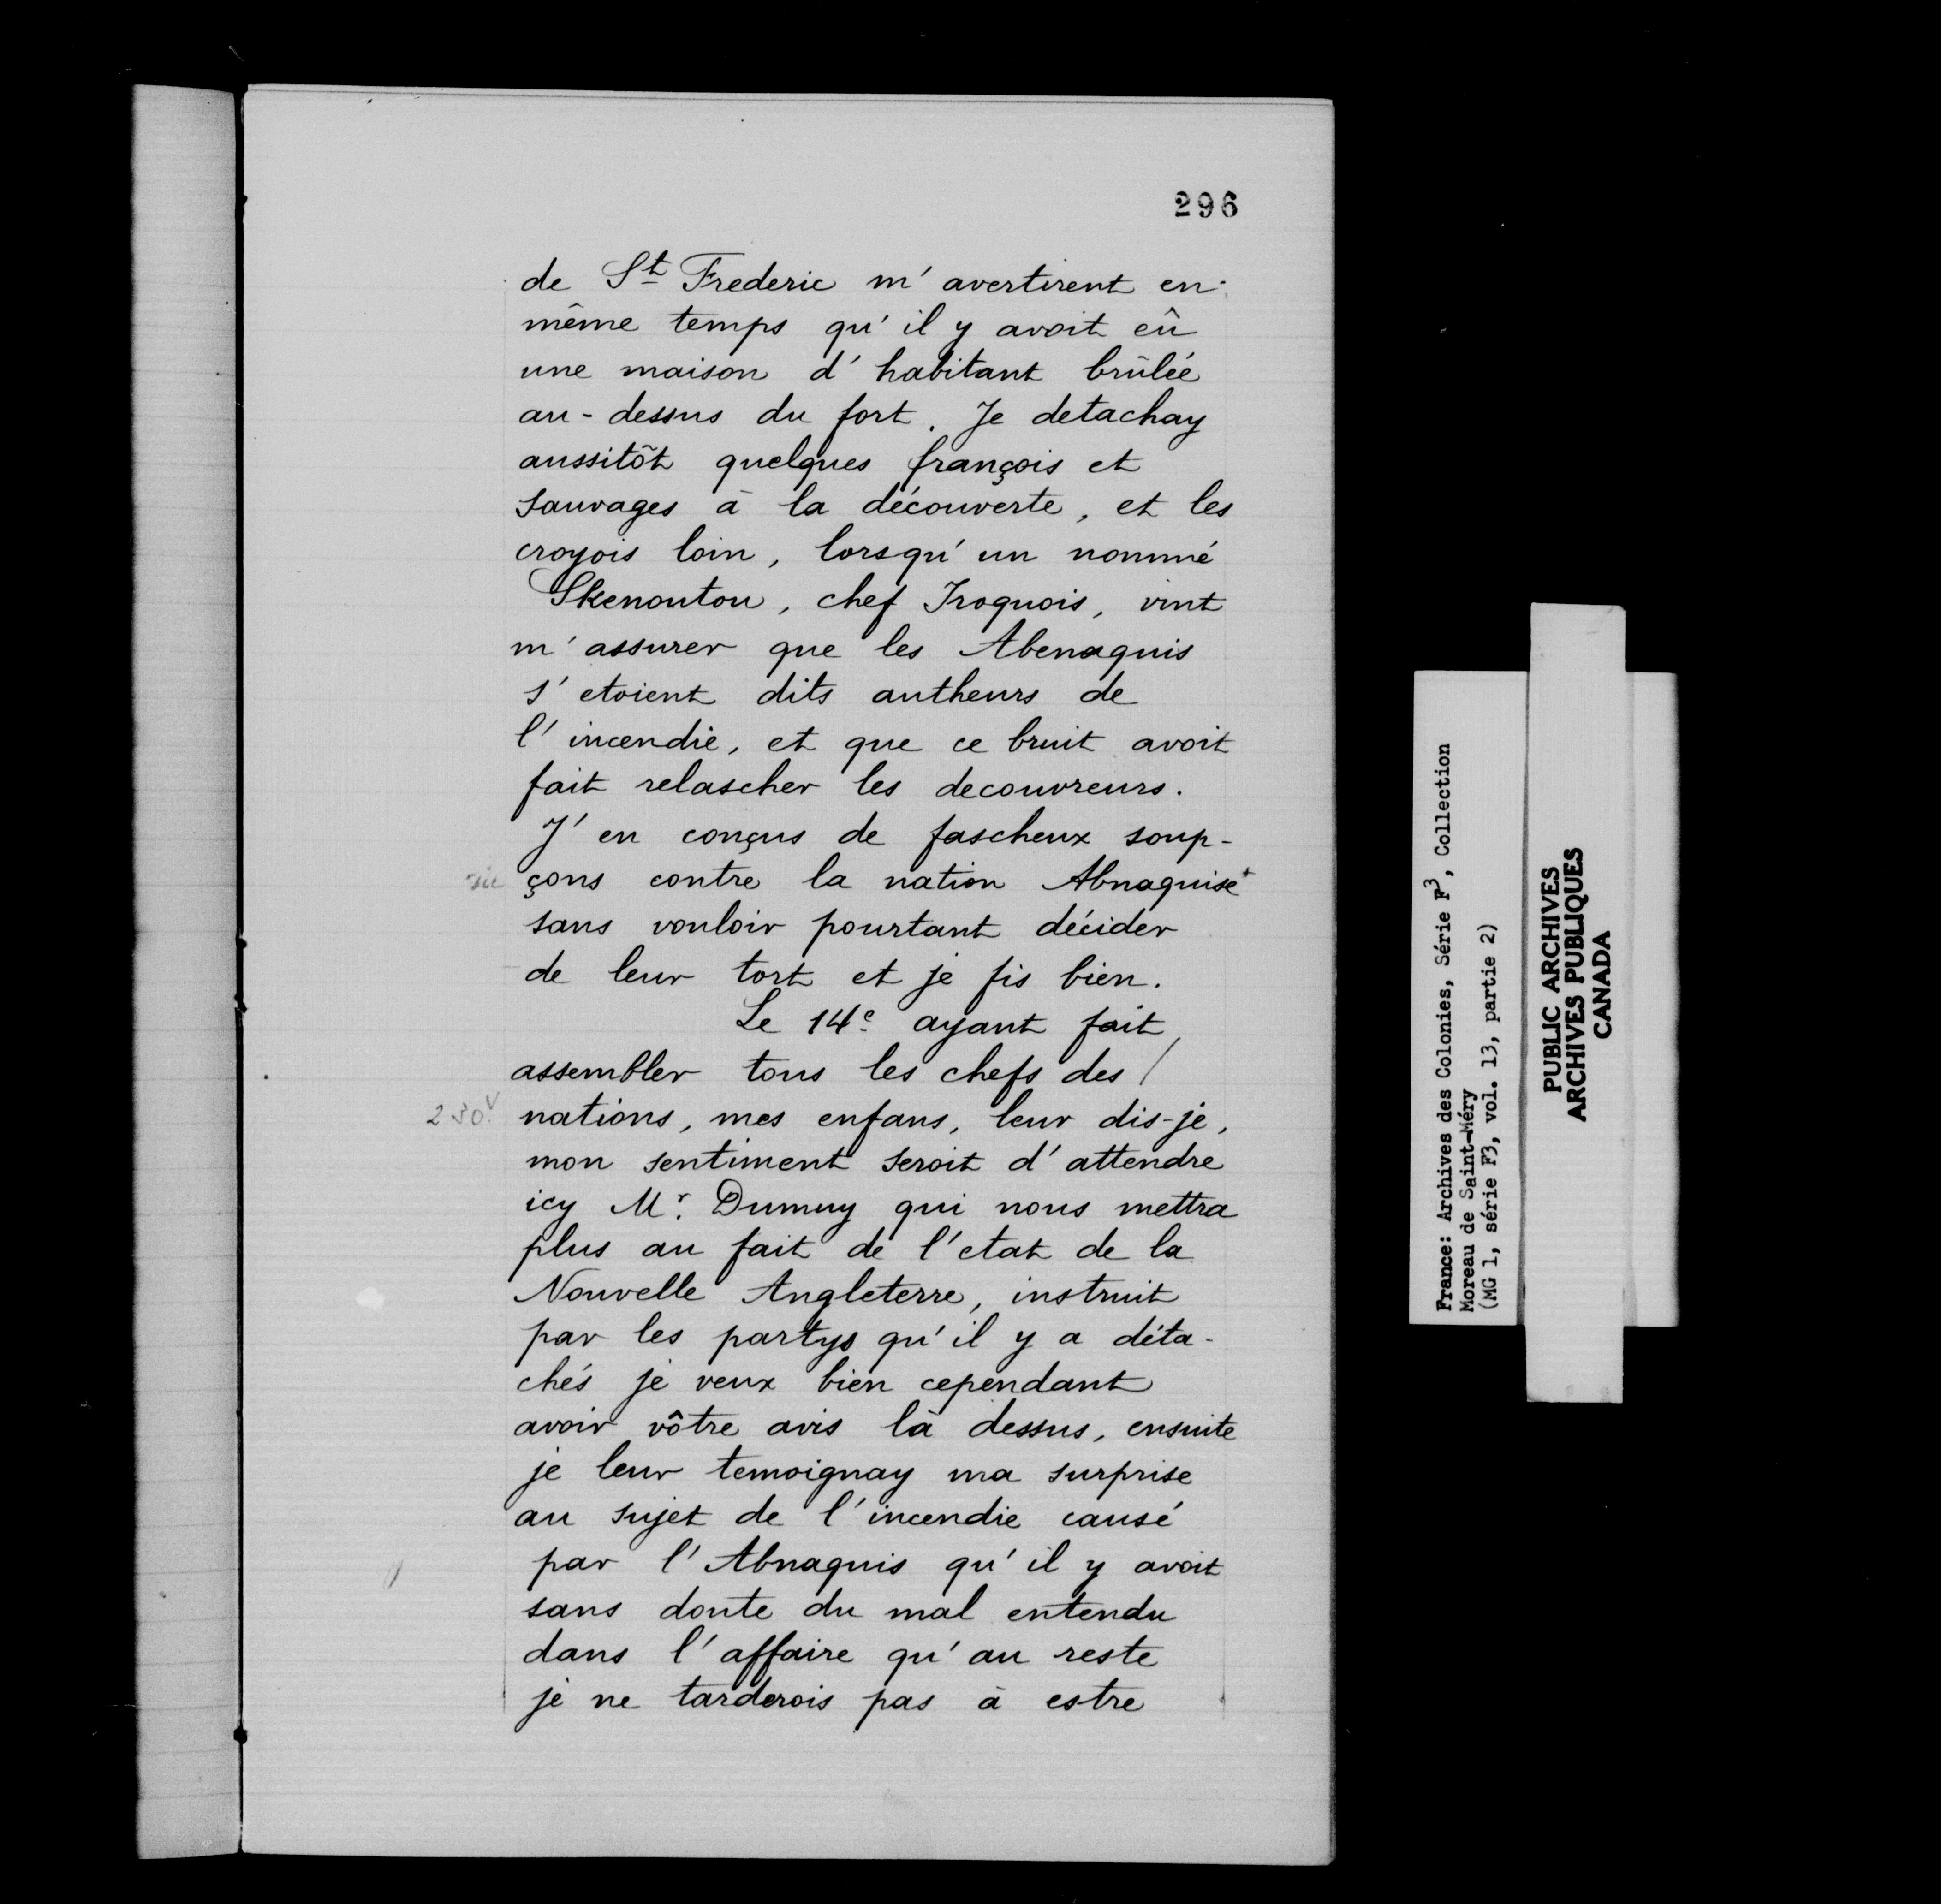 296
de St Frederic m'avertirent en
même temps qu'il y avoit eû
une maison d'habitant brûlée
au-dessus du fort. Je detachay
aussitôt quelques françois et
sauvages à la découverte, et les
croyois loin, lorsqu'un nommé
Skenoutou, chef Iroquois, vint
m'assurer que les Abenaquis
s'etoient dits autheurs de
l'incendie, et que ce bruit avoit
fait relascher les decouvreurs.
J'en conçus de fascheux soup-
sic çons contre la nation Abnaquise+
sans vouloir pourtant décider
de leur tort et je fis bien.
Le 14e ayant fait
assembler tous les chefs des /
230v. nations, mes enfans, leur dis-je,
mon sentiment seroit d'attendre
icy Mr. Dumuy qui nous mettra
plus au fait de l'etat de la
Nouvelle Angleterre, instruit
par les partys qu'il y a déta-
chés je veux bien cependant
avoir vôtre avis là dessus, ensuite
je leur temoignay ma surprise
au sujet de l'incendie causé
par l'Abnaquis qu'il y avoit
sans doute du mal entendu
dans l'affaire qu'au reste
je ne tarderois pas à estre
France: Archives des Colonies, Série F3, Collection
Moreau de Saint-Méry
(MG 1, série F3, vol. 13, partie 2)
PUBLIC ARCHIVES
ARCHIVES PUBLIQUES
CANADA